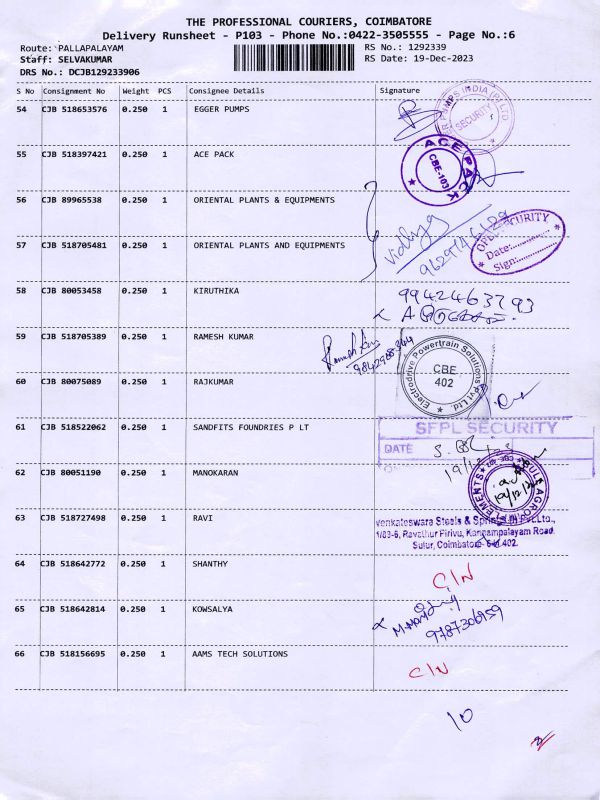 THE PROFESSIONAL COURIERS, COIMBATORE
Delivery Runsheet - P103 - Phone No.:0422-3505555 - Page No.:6
Route: PALLAPALAYAM RS No.: 1292339
Staff: SELVAKUMAR RS Date: 19-Dec-2023
DRS No.: DCJB129233906
S No Consignment No Weight PCS Consignee Details Signature
54 CJB 518653576 0.250 1 EGGER PUMPS
PUMPS INDIA (P) LTD SECURITY
55 CJB 518397421 0.250 1 ACE PACK
ACE PACK CBE-103
56 CJB 89965538 0.250 1 ORIENTAL PLANTS & EQUIPMENTS
Vidhya
57 CJB 518705481 0.250 1 ORIENTAL PLANTS AND EQUIPMENTS
SECURITY
Date:
Sign:
58 CJB 80053458 0.250 1 KIRUTHIKA
9942463793
59 CJB 518705389 0.250 1 RAMESH KUMAR
60 CJB 80075089 0.250 1 RAJKUMAR
Electrodrive Powertrain Solutions Pvt Ltd. CBE 402
61 CJB 518522062 0.250 1 SANDFITS FOUNDRIES P LT
SFPL SECURITY
DATE
62 CJB 80051190 0.250 1 MANOKARAN
19/12/2
63 CJB 518727498 0.250 1 RAVI
Venkateswara Steels & Springs (I) Pvt Ltd.,
1/83-6, Ravathur Pirivu, Kannampalayam Road,
Sulur, Coimbatore-641 402.
64 CJB 518642772 0.250 1 SHANTHY
C/N
65 CJB 518642814 0.250 1 KOWSALYA
9787306959
66 CJB 518156695 0.250 1 AAMS TECH SOLUTIONS
C/N
10